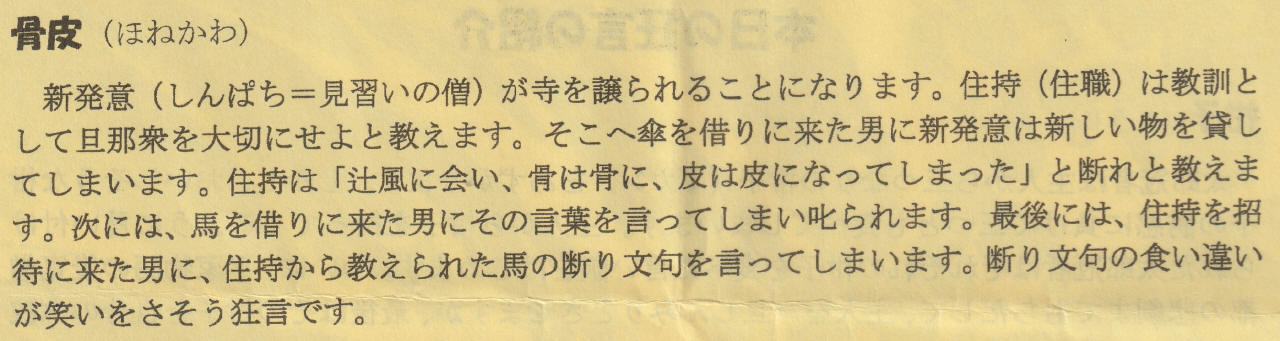 骨皮（ほねかわ）
新発意（しんぱち＝見習いの僧）が寺を譲られることになります。住持（住職）は教訓と
して旦那衆を大切にせよと教えます。そこへ傘を借りに来た男に新発意は新しい物を貸し
てしまいます。住持は「辻風に会い、骨は骨に、皮は皮になってしまった」と断れと教えま
す。次には、馬を借りに来た男にその言葉を言ってしまい叱られます。最後には、住持を招
待に来た男に、住持から教えられた馬の断り文句を言ってしまいます。断り文句の食い違い
が笑いをさそう狂言です。